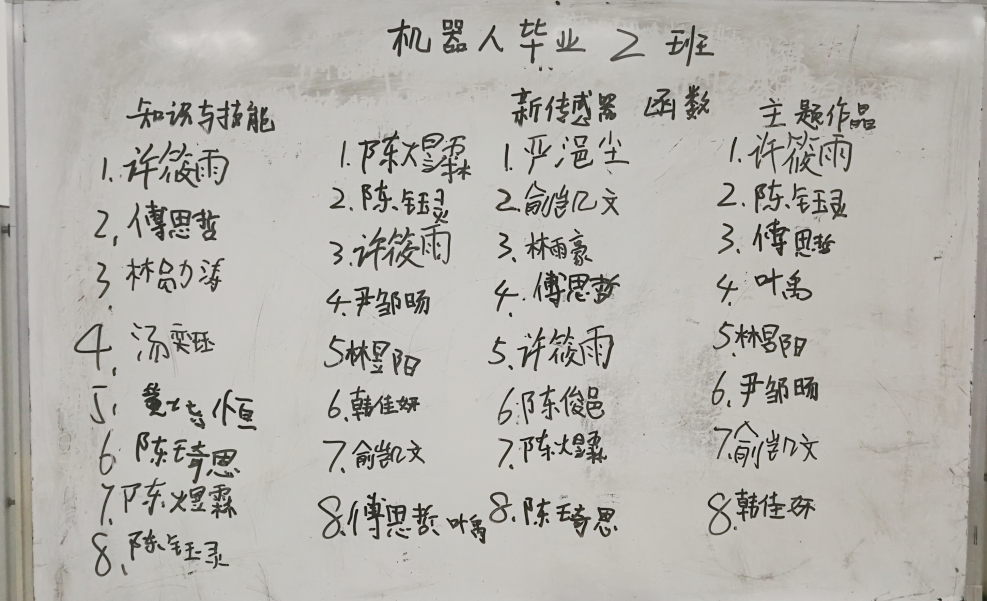 机器人毕业2班
知识与技能
1.许筱雨
2.傅思哲
3.林勖涛
4.汤奕珏
5.黄士恒
6.陈琦思
7.陈煜霖
8.陈钰录
1.陈煜霖
2.陈钰录
3.许筱雨
4.尹邹旸
5林昱阳
6.韩佳妍
7.俞凯文
8.傅思哲 叶禹
新传感器 函数
1.严浥尘
2.俞凯文
3.林雨豪
4.傅思哲
5.许筱雨
6.陈俊邑
7.陈煜霖
8.陈琦思
主题作品
1.许筱雨
2.陈钰录
3.傅思哲
4.叶禹
5.林昱阳
6.尹邹旸
7.俞凯文
8.韩佳妍